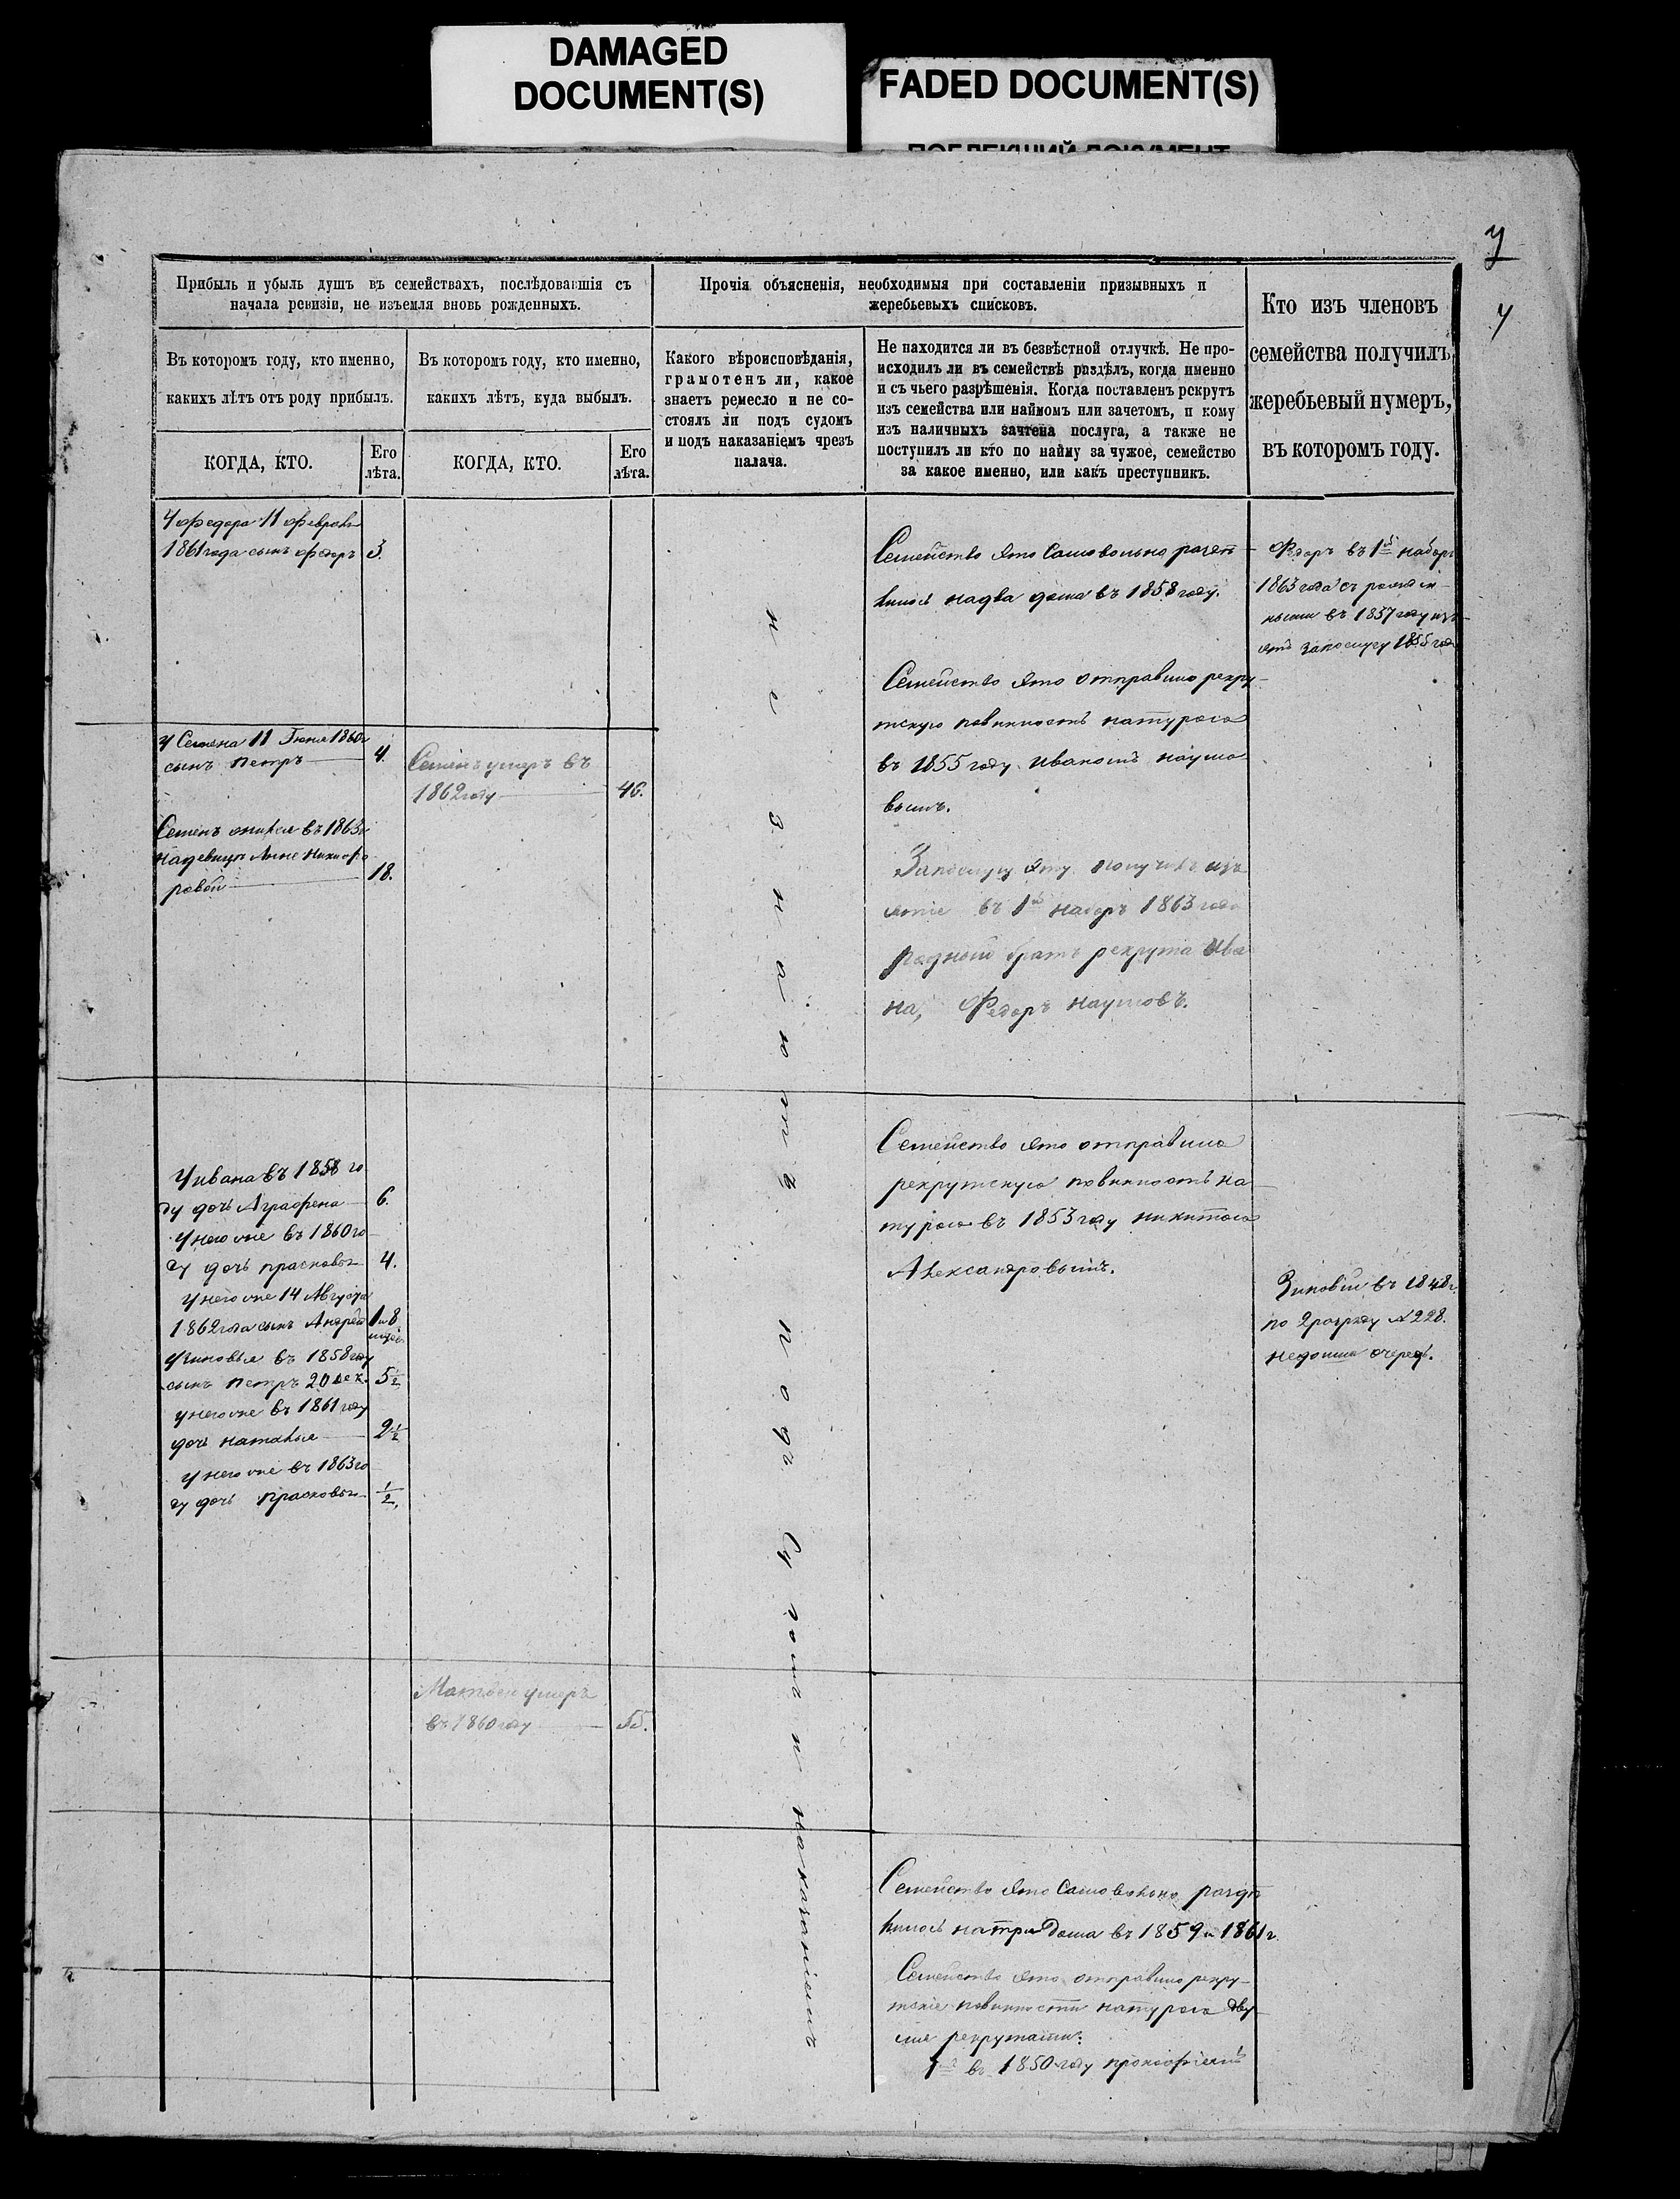 DAMAGED
DOCUMENT(S)
FADED DOCUMENT(S)
ПОБЛЕКШИЙ ДОКУМЕНТ
Прибыль и убыль душъ въ семействахъ, послѣдовавшія съ
начала ревизіи, не изъемля вновь рожденныхъ.
Въ которомъ году, кто именно,
какихъ лѣтъ отъ роду прибылъ.
Въ которомъ году, кто именно,
какихъ лѣтъ, куда выбылъ.
КОГДА, КТО.
Его
лѣта.
КОГДА, КТО.
Его
лѣта.
Прочія объясненія, необходимыя при составленіи призывныхъ и
жеребьевыхъ списковъ.
Какого вѣроисповѣданія,
грамотенъ ли, какое
знаетъ ремесло и не со-
стоялъ ли подъ судомъ
и подъ наказаніемъ чрезъ
палача.
Не находится ли въ безвѣстной отлучкѣ. Не про-
исходилъ ли въ семействѣ раздѣлъ, когда именно
и съ чьего разрѣшенія. Когда поставленъ рекрутъ
изъ семейства или наймомъ или зачетомъ, и кому
изъ наличныхъ зачтена послуга, а также не
поступилъ ли кто по найму за чужое, семейство
за какое именно, или какъ преступникъ.
Кто изъ членовъ
семейства получилъ
жеребьевый нумеръ,
въ которомъ году.
У Федора 11 Февраля
1861 года сынъ Федоръ 3.
у Семена 11 Іюня 1860 г
сынъ Петръ 4.
Семенъ въ 1863 г
на девицы Анне Никифо
ровой 18.
У Ивана въ 1858 го
ду дочь Аграфена 6.
У него же въ 1860 го
ду дочь Прасковья 4.
У него же 14 Августа
1862 года сынъ Андрей 1 и 8
у Зиновья въ 1858 году
сынъ Петръ 20 Дек. 5½
у него же въ 1861 году
дочь Наталья 2½
у него же въ 1863 го
ду дочь Прасковья ½.
Семенъ умеръ въ
1862 году 46.
Матвей умеръ
въ 1860 году 55.
Семейство это самовольно раздѣ-
лилось на два дома въ 1858 году.
Семейство это отправило рекру-
тскую повинность натурою
въ 1855 году Иваномъ Наумо
вымъ.
За послугу эту получилъ изъ
ятіе въ 1й наборъ 1863 года
родной братъ рекрута Ива
на, Федоръ Наумовъ.
Семейство это отправило
рекрутскую повинность на-
турою въ 1853 году Никитою
Александровымъ.
Семейство это самовольно раздѣ
лилось на три дома въ 1859 и 1861 г.
Семейство это отправило рекру-
тскіе повинности натурою дву-
мя рекрутами:
1й въ 1850 году Прокофіемъ
Федоръ въ 1й наборъ
1863 года съ рожден-
ными въ 1837 году изъ-
ятъ за послугу 1855 года
Зиновій въ 1848 г.
по 2 разряду № 228.
не дошли очередь.
не знаютъ подъ судомъ и наказаніемъ